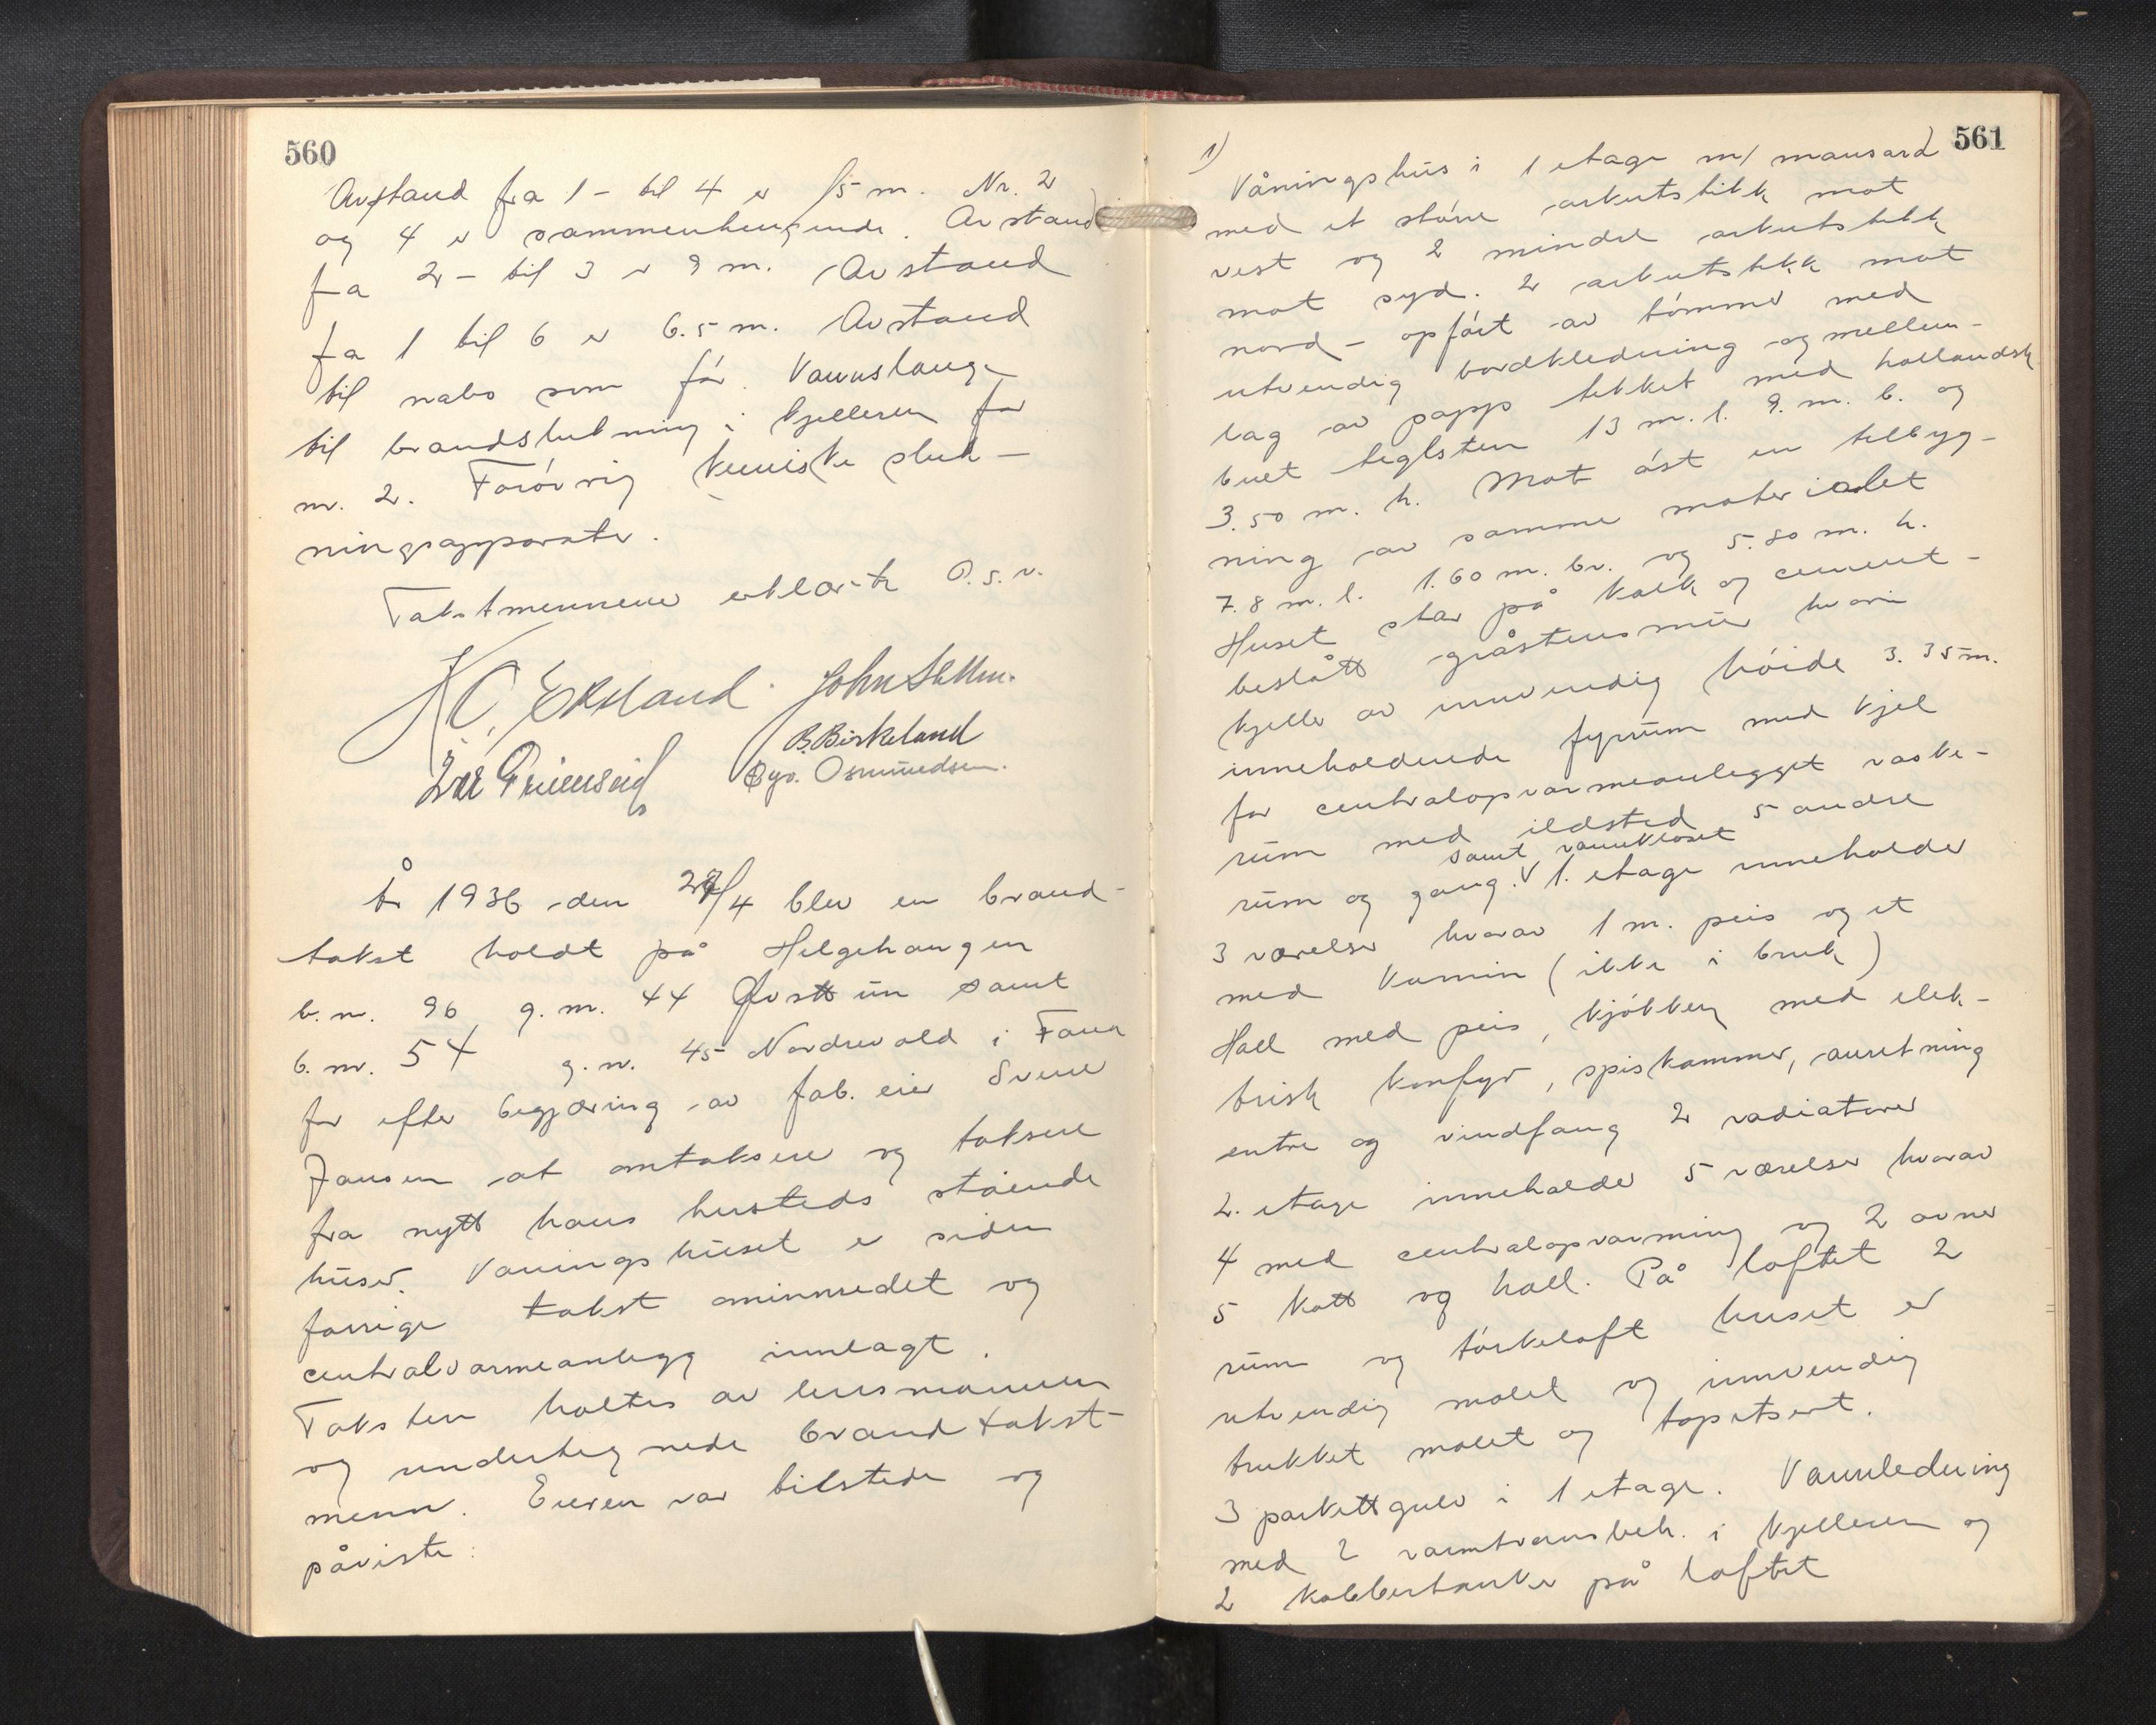 560
Avstand fra 1 - til 4 er 15 m. Nr. 2
og 4 er sammenhengende. Avstand
fra 2 - til 3 er 9 m. Avstand
fra 1 til 6 er 6.5 m. Avstand
til nabo som før. Vannslange
til brandslukning i kjelleren for
nr. 2. Forøvrig kemiske sluk-
ningsapparater.
Takstmennene erklærte O.s.v.
Ekeland. John
B. Birkeland
Osmundsen.
År 1936 den 27/4 blev en brand-
takst holdt på Helgehaugen
b.nr. 96 g.nr. 44 samt
b.nr. 54 g.nr. 45 Nordrevold i Fana
for efter begjæring av fab. eier Svene
Jansen at omtaksere og taksere
fra nytt hans husteds stående
huser. Vaningshuset er siden
forrige takst ominnredet og
centralvarmeanlegg innlagt.
Taksten holtes av lensmannen
og undertegnede brandtakst-
menn. Eieren var tilstede og
påviste:
561
1)
Våningshus i 1 etage m/ mansard
med et større arkutstikk mot
vest og 2 mindre arkutstikk
mot syd. 2 arkutstikk mot
nord - opført av tømmer med
utvendig bordkledning og mellem-
lag av papp tekket med hollandsk
buet teglsten 13 m. l. 9. m. b. og
3.50 m. h. Mot øst en tilbyg-
ning av samme materialet
7.8 m. l. 1.60 m. br. og 5.80 m. h.
Huset står på kalk og cement-
beslått gråstensmur hvori
kjeller av innvendig høide 3.35 m.
inneholdende fyrrum med kjel
for centralopvarmeanlegget vaske-
rum med ildsted 5 andre
samt vannkloset
rum og gang. V 1. etage inneholder
3 værelser hvorav 1 m. peis og et
med kamin (ikke i bruk)
Hall med peis, kjøkken med elek-
trisk komfyr, spiskammer, anretning
entre og vindfang 2 radiatorer
2. etage inneholder 5 værelser hvorav
4 med centralopvarming og 2 ovner
5 kott og hall. På loftet 2
rum og tørkeloft huset er
utvendig malet og innvendig
trukket malet og tapetsert.
3 parkettgulv i 1 etage. Vannledning
med 2 varmtvannsbeh. i kjelleren og
2 kobbertanker på loftet